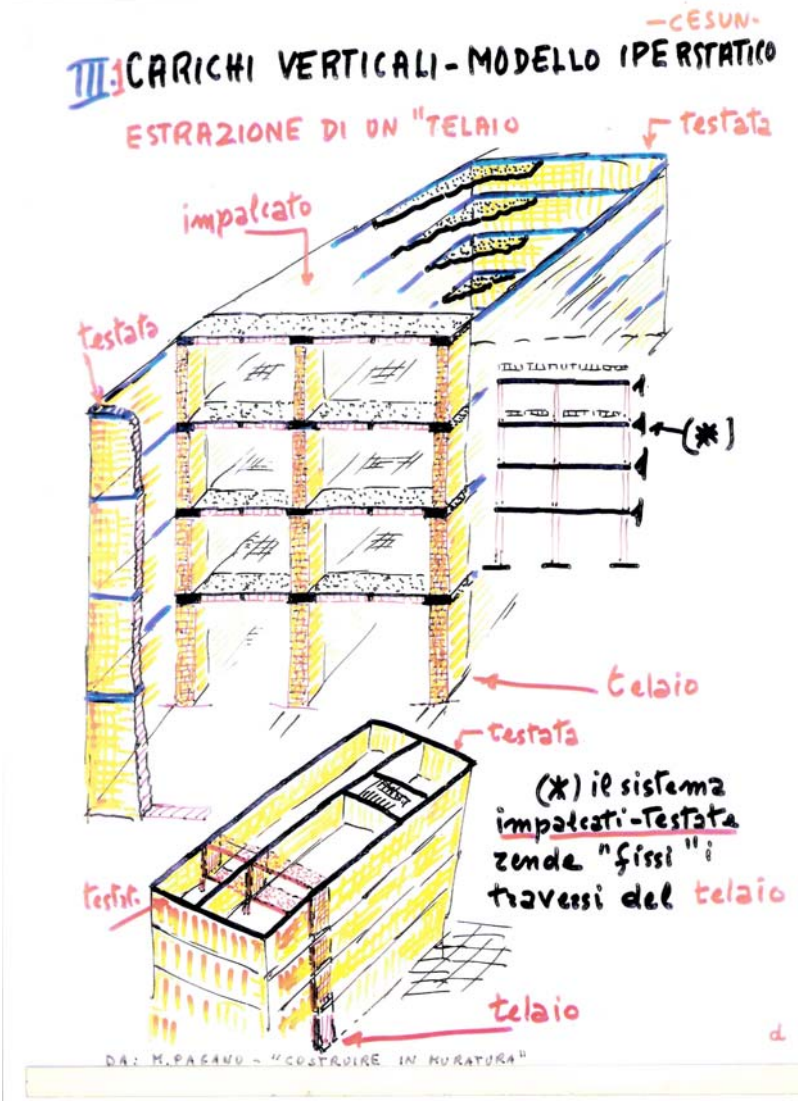 -CESUN-
III.1 CARICHI VERTICALI-MODELLO IPERSTATICO
ESTRAZIONE DI UN "TELAIO
testata
impalcato
testata
(*)
telaio
testata
(*) il sistema
impalcati-Testate
rende "fissi" i
traversi del telaio
testat.
telaio
d
DA: M. PAGANO - "COSTRUIRE IN MURATURA"